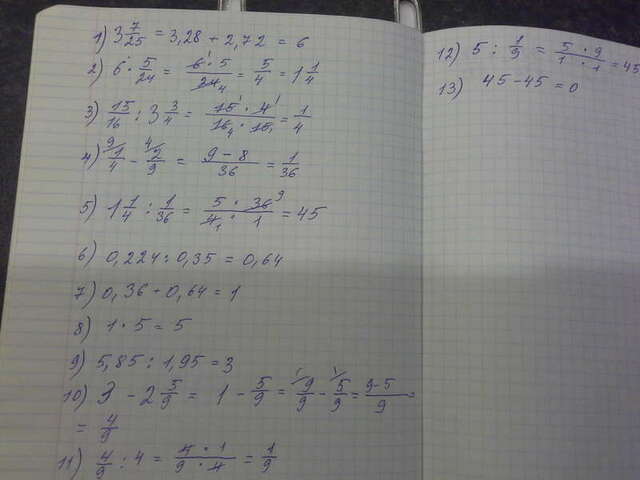 1) 3 7/25 = 3,28 + 2,72 = 6
2) 6 · 5/24 = 6 · 5/24 = 5/4 = 1 1/4
3) 15/16 : 3 3/4 = 15 · 4/16 · 15 = 1/4
4) 1/4 - 2/9 = 9 - 8/36 = 1/36
5) 1 1/4 : 1/36 = 5 · 36/4 · 1 = 45
6) 0,224 : 0,35 = 0,64
7) 0,36 + 0,64 = 1
8) 1 · 5 = 5
9) 5,85 : 1,95 = 3
10) 3 - 2 5/9 = 1 - 5/9 = 9/9 - 5/9 = 9-5/9 =
= 4/9
11) 4/9 : 4 = 4 · 1/9 · 4 = 1/9
12) 5 : 1/9 = 5 · 9/1 · 1 = 45
13) 45 - 45 = 0